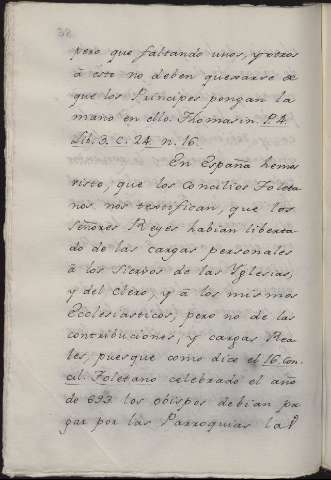 pero que faltando unos, y otros
á esto no deben quexarse de
que los Principes pongan la
mano en ello. Thomasin. P. 4.
Lib. 3. c. 24. n. 16.
En España hemos
visto, que los Concilios Toleta-
nos nos testifican, que los
Señores Reyes habian liberta-
do de las cargas personales
á los Siervos de las Yglesias,
y del Clero, y á los mismos
Ecclesiasticos, pero no de las
contribuciones, y cargas Rea-
les, pues que como dice el 16 Con-
cil. Toletano celebrado el año
de 693 los obispos debian pa-
gar por las Parroquias la